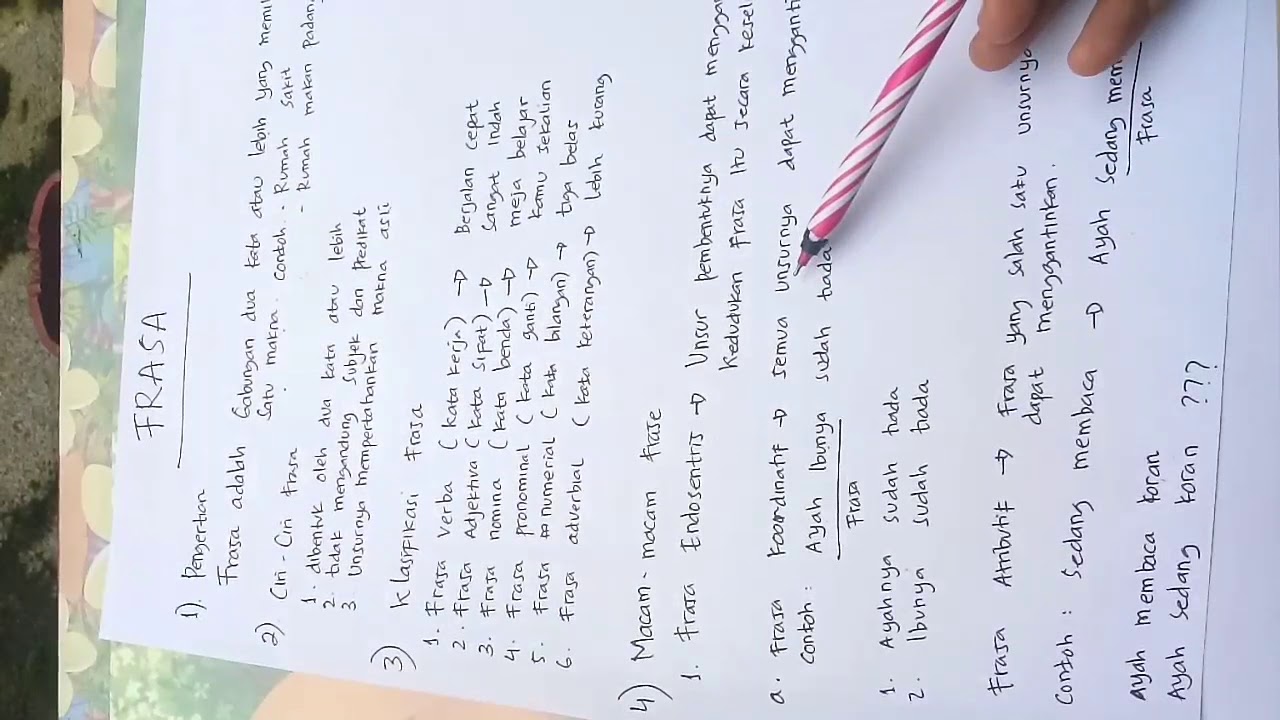 FRASA
1). Pengertian
Frasa adalah Gabungan dua kata atau lebih yang memil
satu makna. Contoh. - Rumah sakit
- Rumah makan padang
2) Ciri - Ciri frasa
1. dibentuk oleh dua kata atau lebih
2. tidak mengandung subjek dan predikat
3. Unsurnya mempertahankan makna asli
3) Klasifikasi frasa
1. Frasa verba (kata kerja) → Berjalan cepat
2. Frasa Adjektiva (kata sifat) → sangat indah
3. Frasa nomina (kata benda) → meja belajar
4. Frasa pronominal (kata ganti) → kamu sekalian
5. Frasa numerial (kata bilangan) → tiga belas
6. Frasa adverbial (kata keterangan) → lebih kurang
4) Macam-macam frase
1. Frasa Endosentris → Unsur pembentuknya dapat mengga
Kedudukan frasa itu secara kesel
a. Frasa Koordinatif → semua unsurnya dapat mengganti
Contoh : Ayah Ibunya sudah tiada
Frasa
1. Ayahnya sudah tiada
2. Ibunya sudah tiada
Frasa Atributif → Frasa yang salah satu unsurnya
dapat menggantinkan.
Contoh : Sedang membaca → Ayah sedang mem
Frasa
Ayah membaca koran
Ayah sedang koran ???